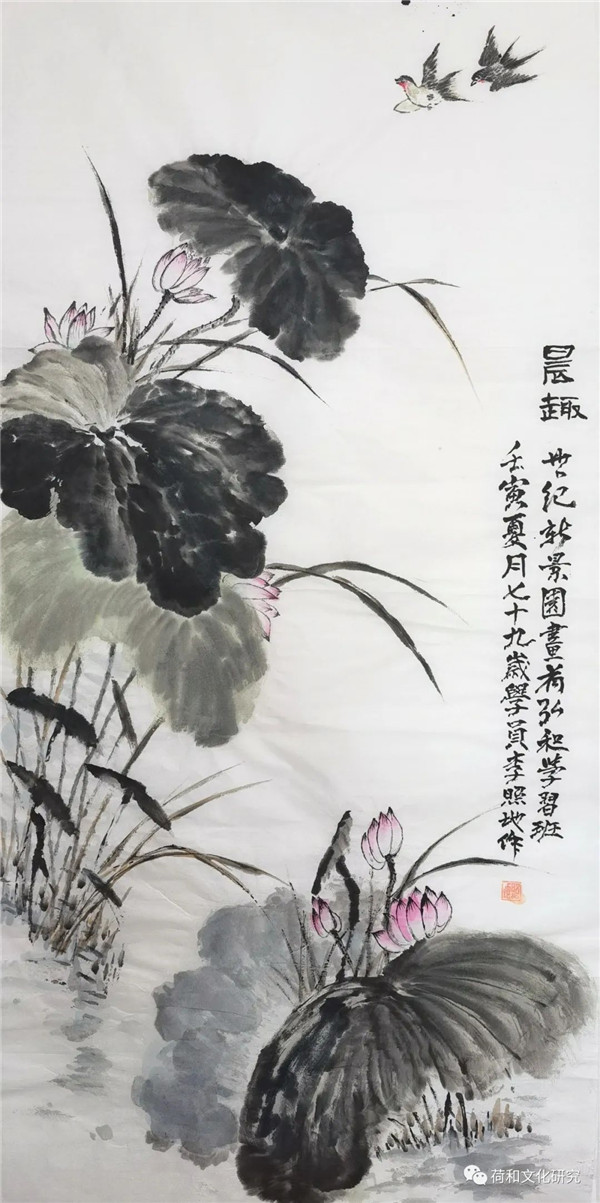 晨趣
世纪新景園畫荷弘和学習班
壬寅夏月七十九歲學員李照地作
荷和文化研究